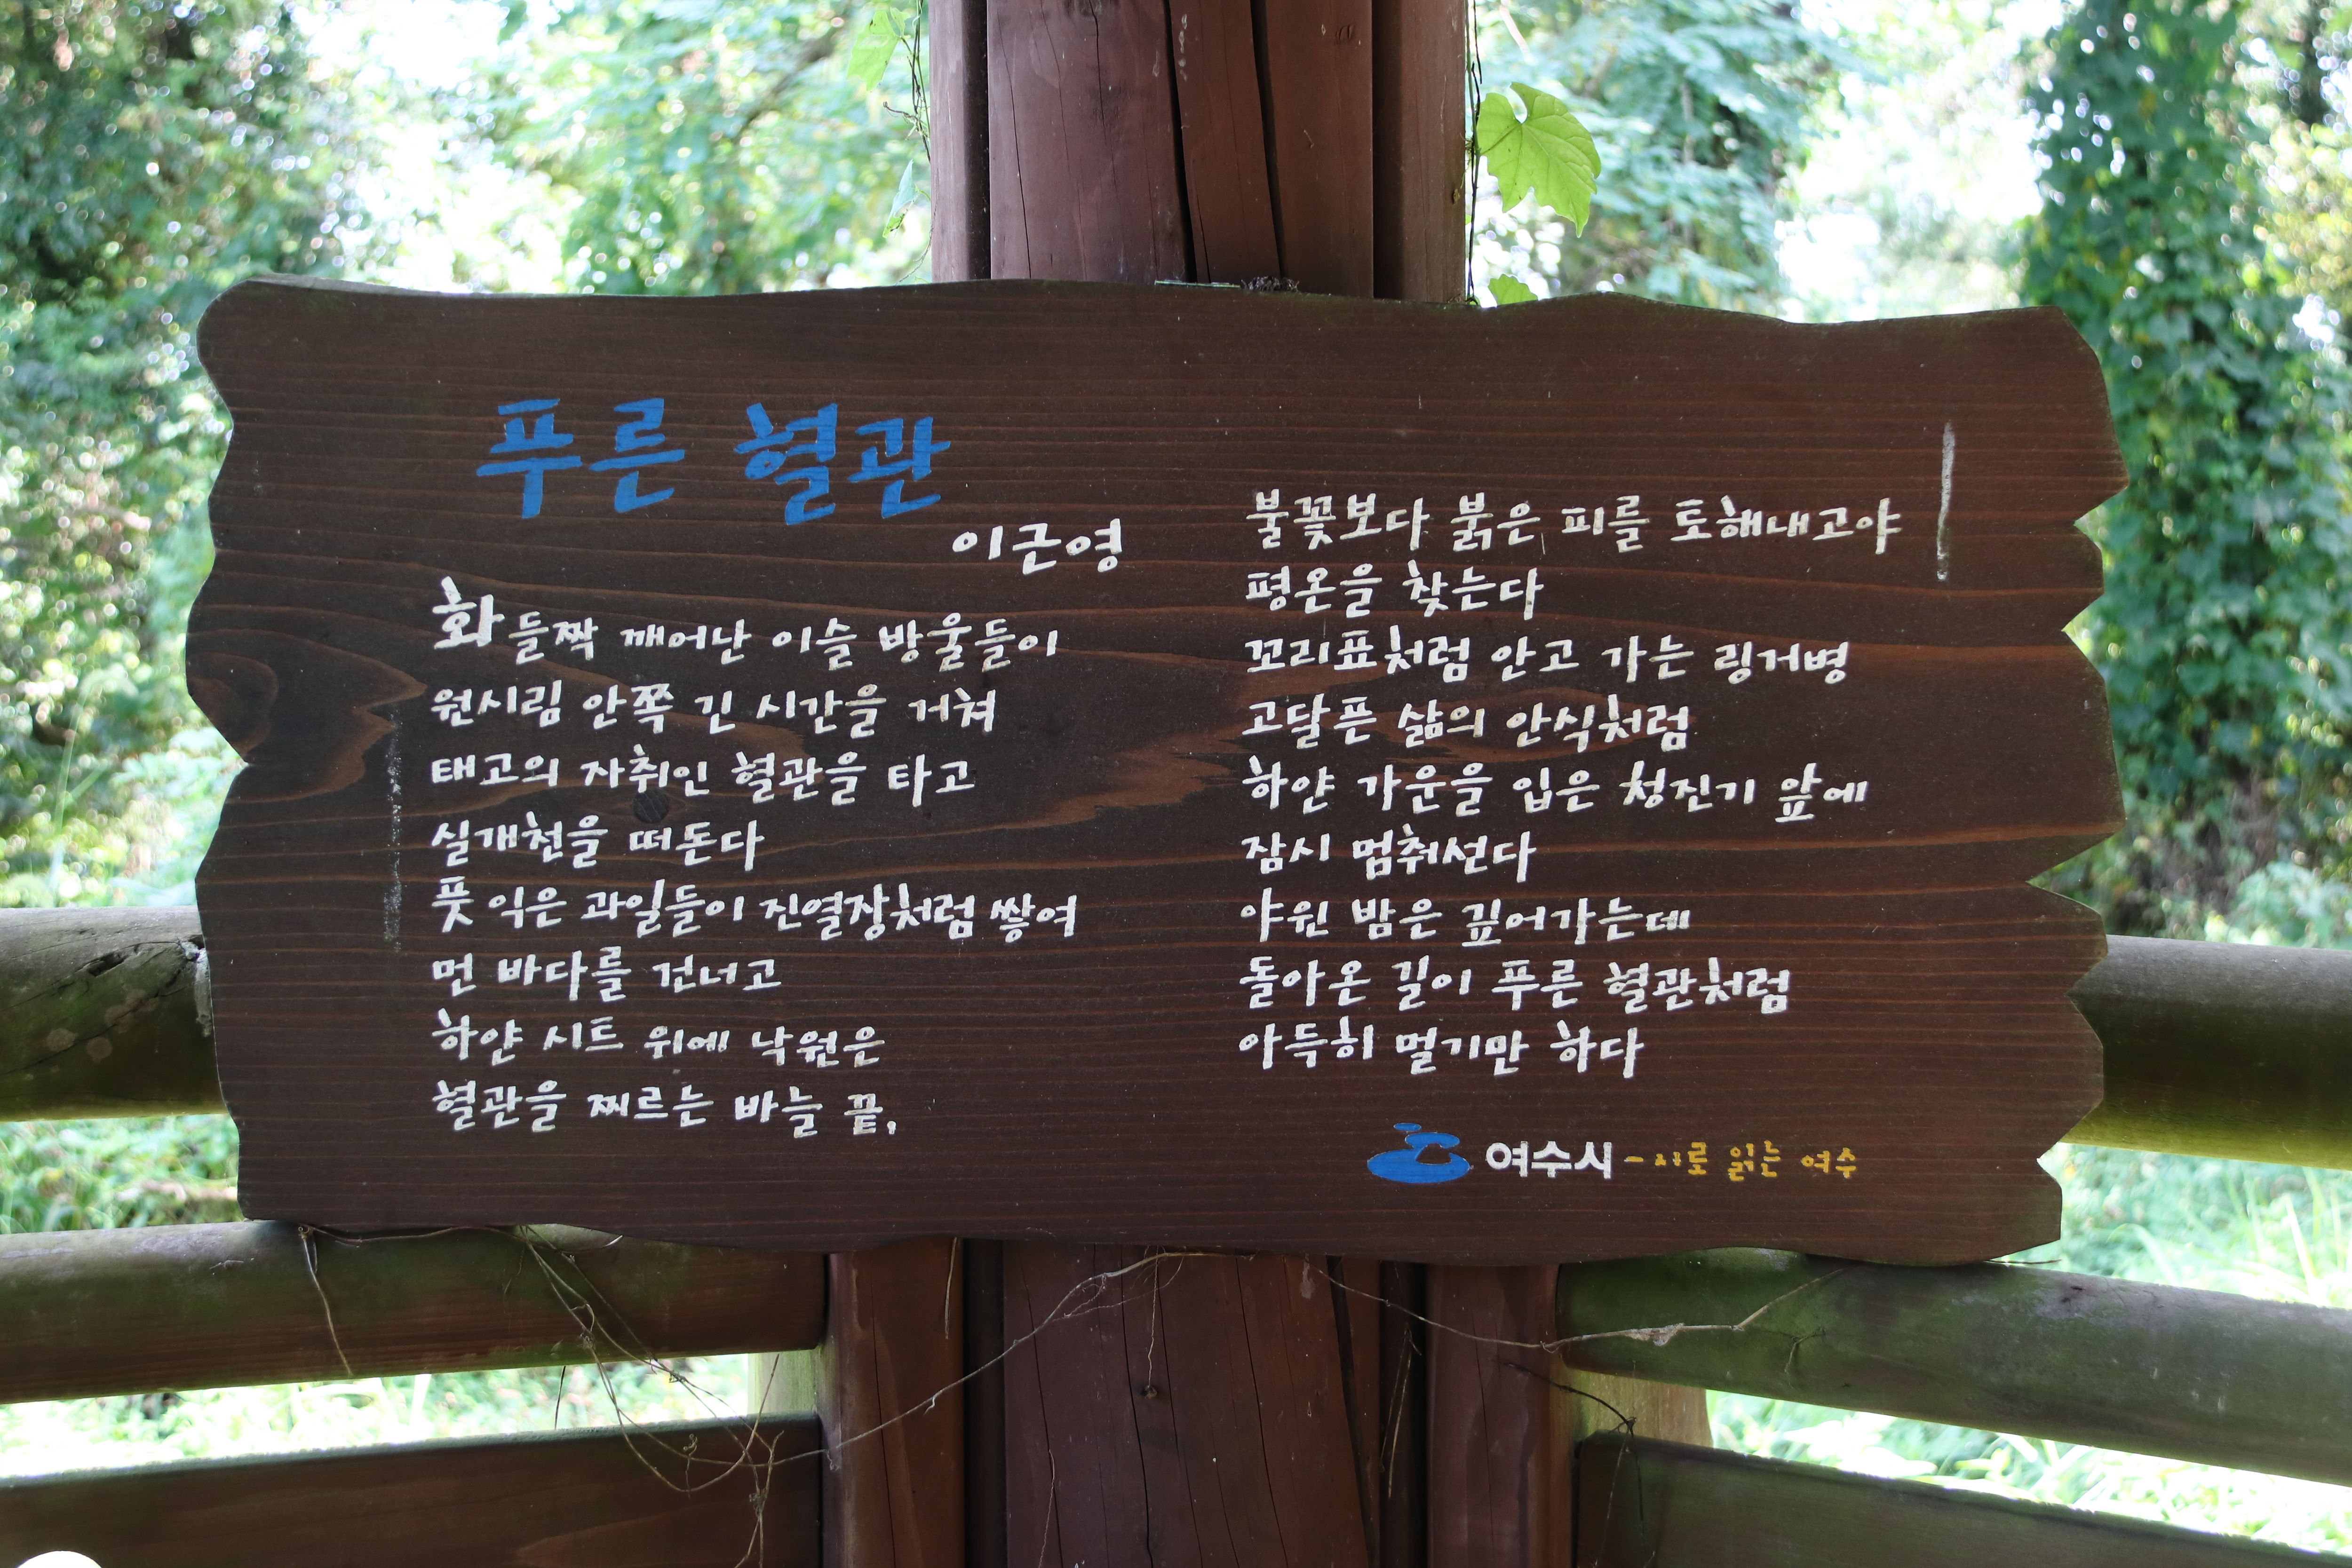 푸른 혈관
이근영
화들짝 깨어난 이슬 방울들이
원시림 안쪽 긴 시간을 거쳐
태고의 자취인 혈관을 타고
실개천을 떠돈다
풋 익은 과일들이 진열장처럼 쌓여
먼 바다를 건너고
하얀 시트 위에 낙원은
혈관을 찌르는 바늘 끝,
불꽃보다 붉은 피를 토해내고야
평온을 찾는다
꼬리표처럼 안고 가는 링거병
고달픈 삶의 안식처럼
하얀 가운을 입은 청진기 앞에
잠시 멈춰선다
야윈 밤은 깊어가는데
돌아온 길이 푸른 혈관처럼
아득히 멀기만 하다
여수시 - 시로 읽는 여수